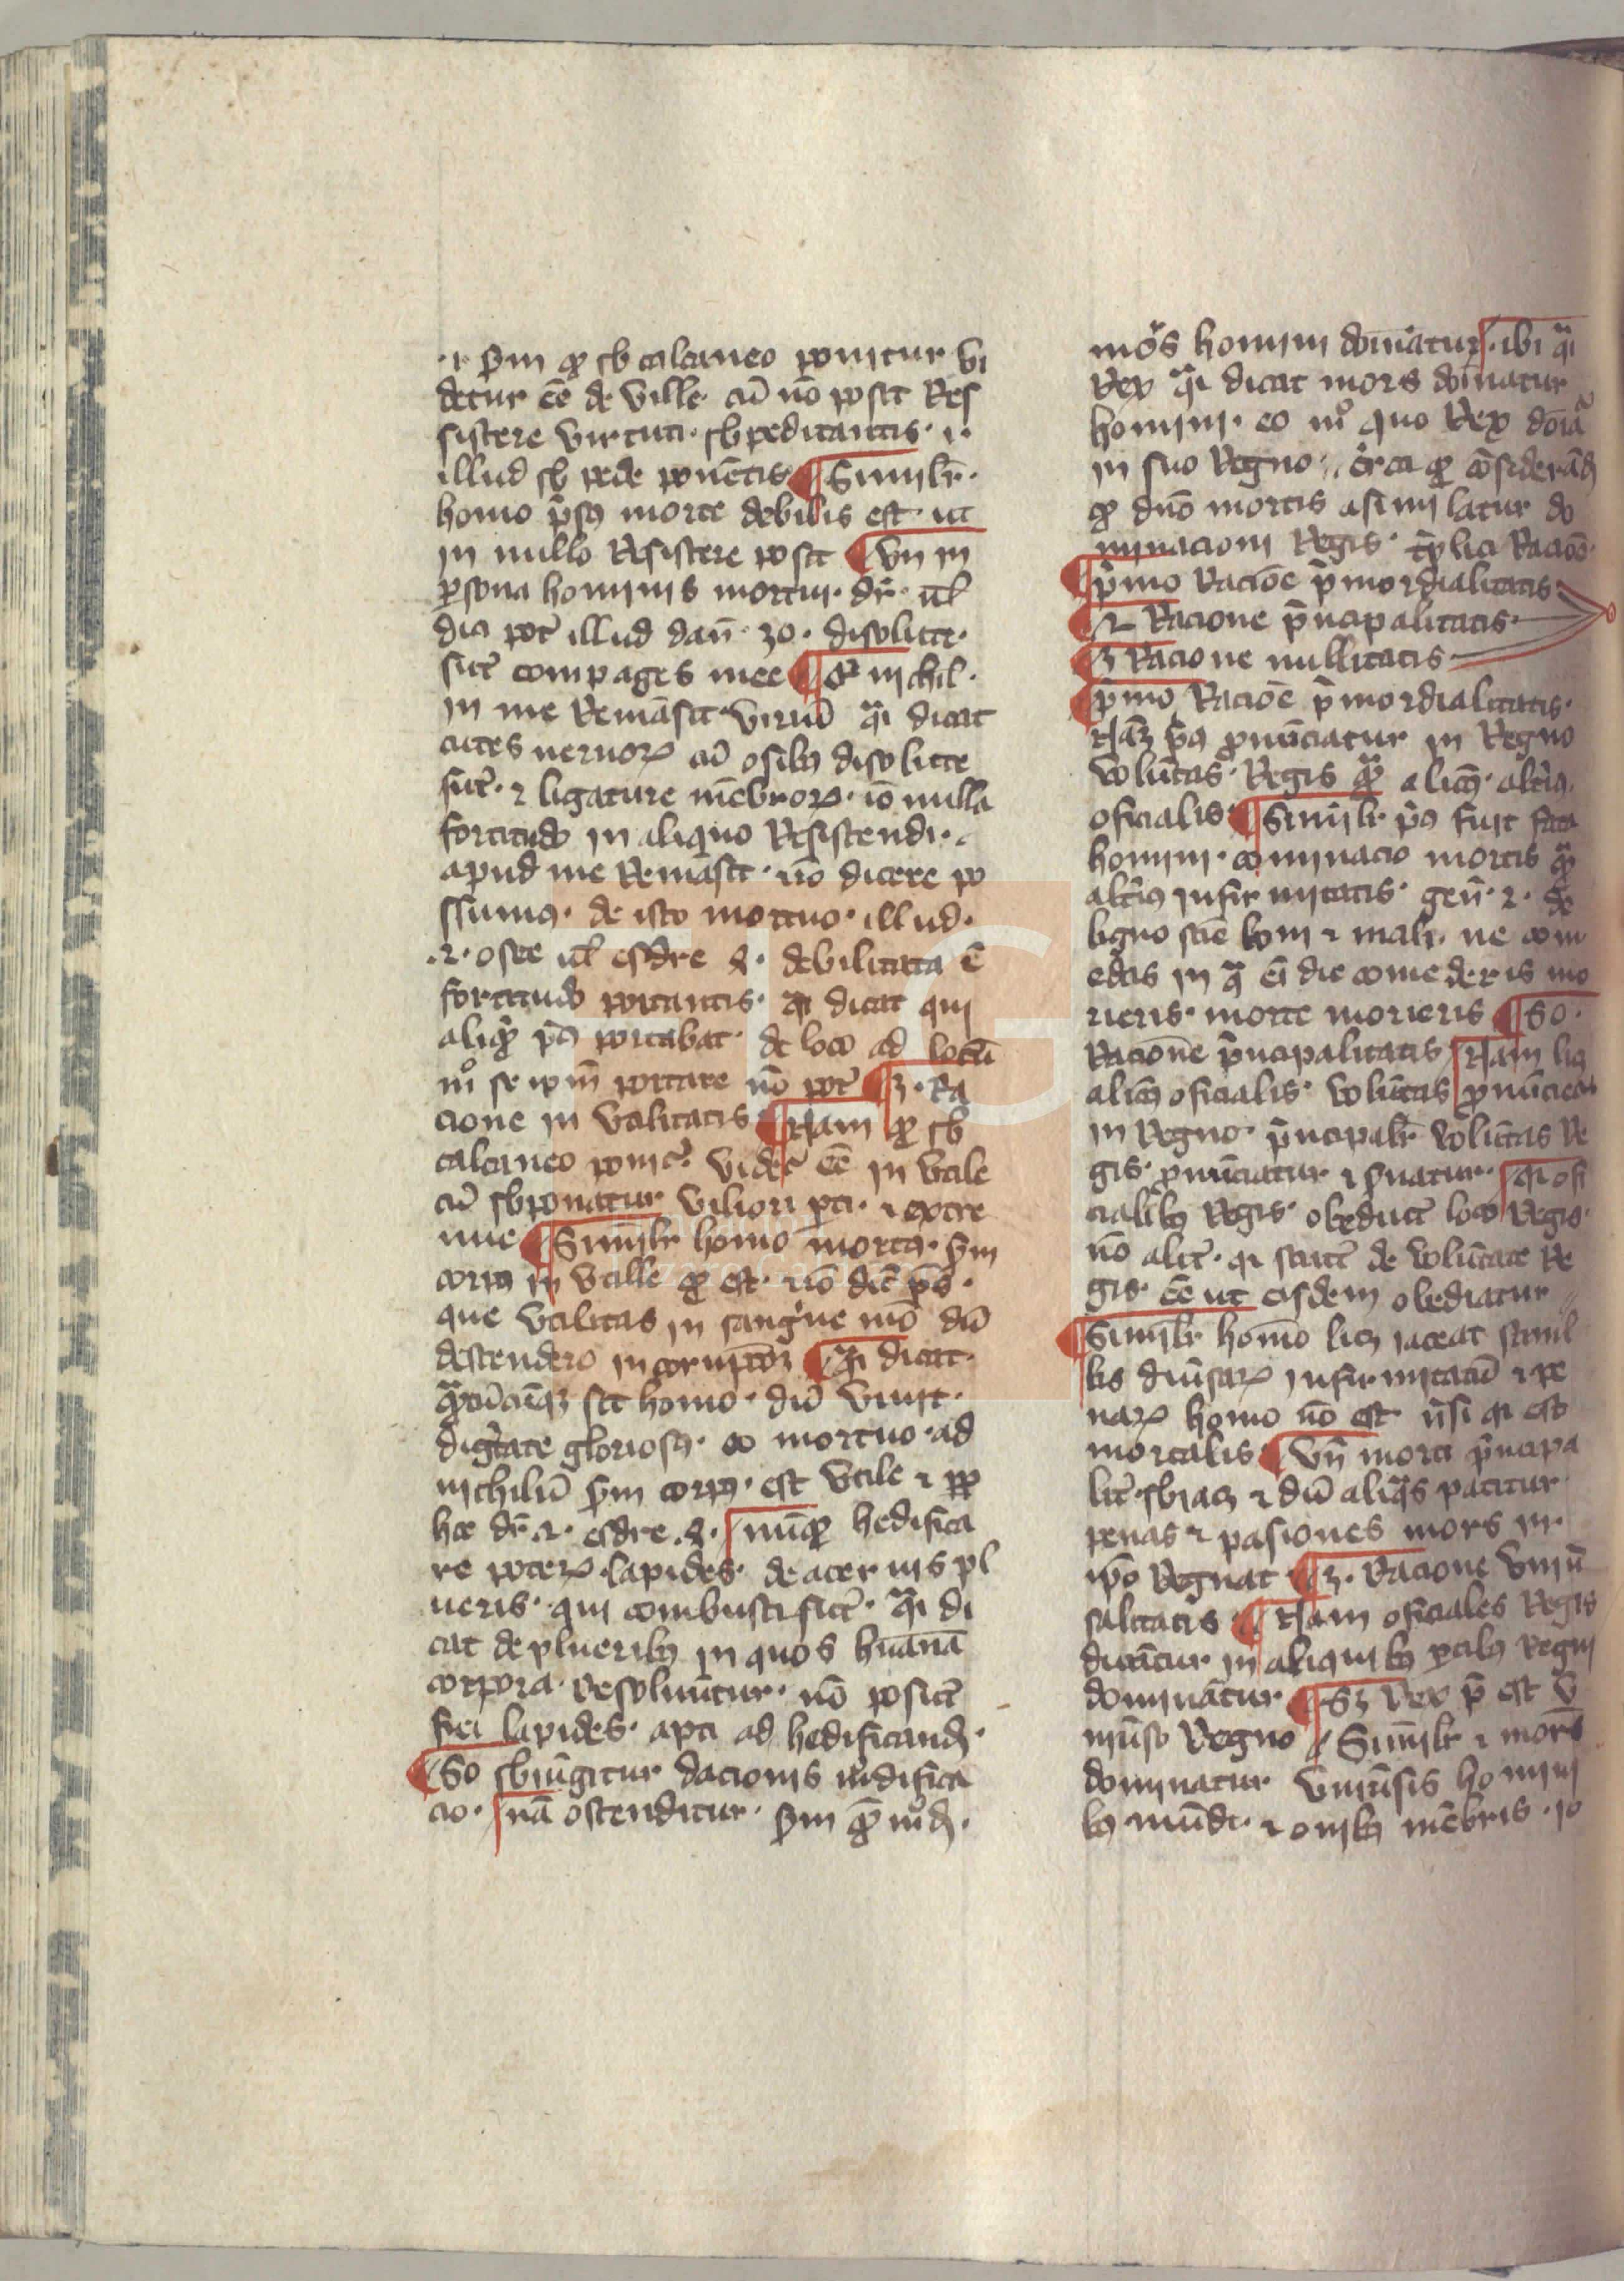 .i. sm̄ qꝫ sb calcaneo ponitur vi
detur eē de ville cū nō posit Res
sistere virtuti. sb peditantis. i.
illud sb pede ponētis Similr̄.
homo p̄sꝰ morte debilis est ut
in nullo Resistere posit Vn̄ in
persona hominis mortui. dr̄. ul̄
dici pot̄ illud dan̄. 10. disolute.
sūt compages mee Et nichil.
in me Remāsit viriū qͣi dicat
cutes neruoꝝ cū osibꝰ disolute
sūt. ⁊ ligature mēbroꝝ. iō nulla
fortitudo in aliquo Resistendi.
apud me Remāsit. nō dicere po
ssumꝰ. de isto mortuo. illud.
.2. osee ul̄ esdre 4. debilitata ē
fortitudo portantis. qͣi dicat qui
aliqͦ pͥꝰ portabat. de loco ad locū
mͦ se ipm̄ portare nō pot̄ 3. Ra
cione in utilitatis Nam qꝫ sb
calcaneo ponit̄. videt̄ eē in utile
cū sbponatur viliori pti. ⁊ extre
me Similr̄ homo mortꝰ. sm̄
corpꝰ in utille qꝫ est. nō dic̄ ps̄.
que utilitas in sangͥne meo dū
descendero in corrupcōꝫ qͣi dicat.
qͣntūcūqꝫ sit homo. dū viuit.
dignitate gloriosꝰ. eo mortuo. ad
nichilū sm̄ corpꝰ. est utile ⁊ pp̄
hoc dr̄ .2. esdre .4. nūqͥd hedifica
re poterūt lapides. de aceruis pl
ueris. qui combusti sūt. qͣi di
cat de plueribꝰ in quos humana
corpora. Resoluūtur. nō posūt
fiei lapides. apti ad hedificandꝫ.
So sbiūgitur dacionis uidifica
cio. nā ostenditur. sm̄ qꝫ mͦdꝫ.
mors homini dominatur. ibi qͣi
Rex qͣi dicat mors dominatur
homini. eo mͦ quo Rex domina
in suo Regno. Circa qꝫ cōsiderādꝫ
qꝫ dn̄o mortis asimilatur do
minacioni Regis. tͥplici Racioe.
pͥmo Racioe pͥmordialitatis.
2 Racione pͥncipalitatis.
3 Racione nullitatis
pͥmo Racioe pͥmordialitatis.
Nāꝫ pͥꝰ pronūciatur in Regno
volūtas. Regis qͣꝫ alicꝰ. alterꝰ.
oficialis Similr̄ pͥꝰ fuit fata
homini. cominacio mortis qͣꝫ
alterꝰ infirmitatis. gen̄. 2. de
ligno sciē boni ⁊ mali. ne com
edas in qͣ ei die comederis mo
rieris. morte morieris So.
Racione pͥncipalitatis Nam licꝫ
alicꝰ oficialis. volūtas pronūciet
in Regno. pͥncipalr̄ volūtas Re
gis. pronūciatur ⁊ seruatur. qi ofi
cialibꝰ Regis. obediūt loco Regis.
nō alit̄. qi sciūt de volūtate Re
gis. eē ut eisdem obediatur
Similr̄ homo licꝫ iaceat stimil
lis diuersaꝝ infirmitatū ⁊ pe
naꝝ homo nō est nisi qi est
mortalis Vn̄ morti pͥncipa
lit̄. sbiacꝫ ⁊ dū aliqͣs patitur
penas ⁊ pasiones mors in.
ipo Regnat 3. Racione vniu
salitatis Nam oficiales Regis
dicūtur in aliquibꝰ ptibꝰ Regni
dominātur Sꝫ Rex p̄ est v̄
niuerso Regno Similr̄ ⁊ mors
dominatur vniuersis homini
bꝰ mundi. ⁊ omibꝰ mēbris. io